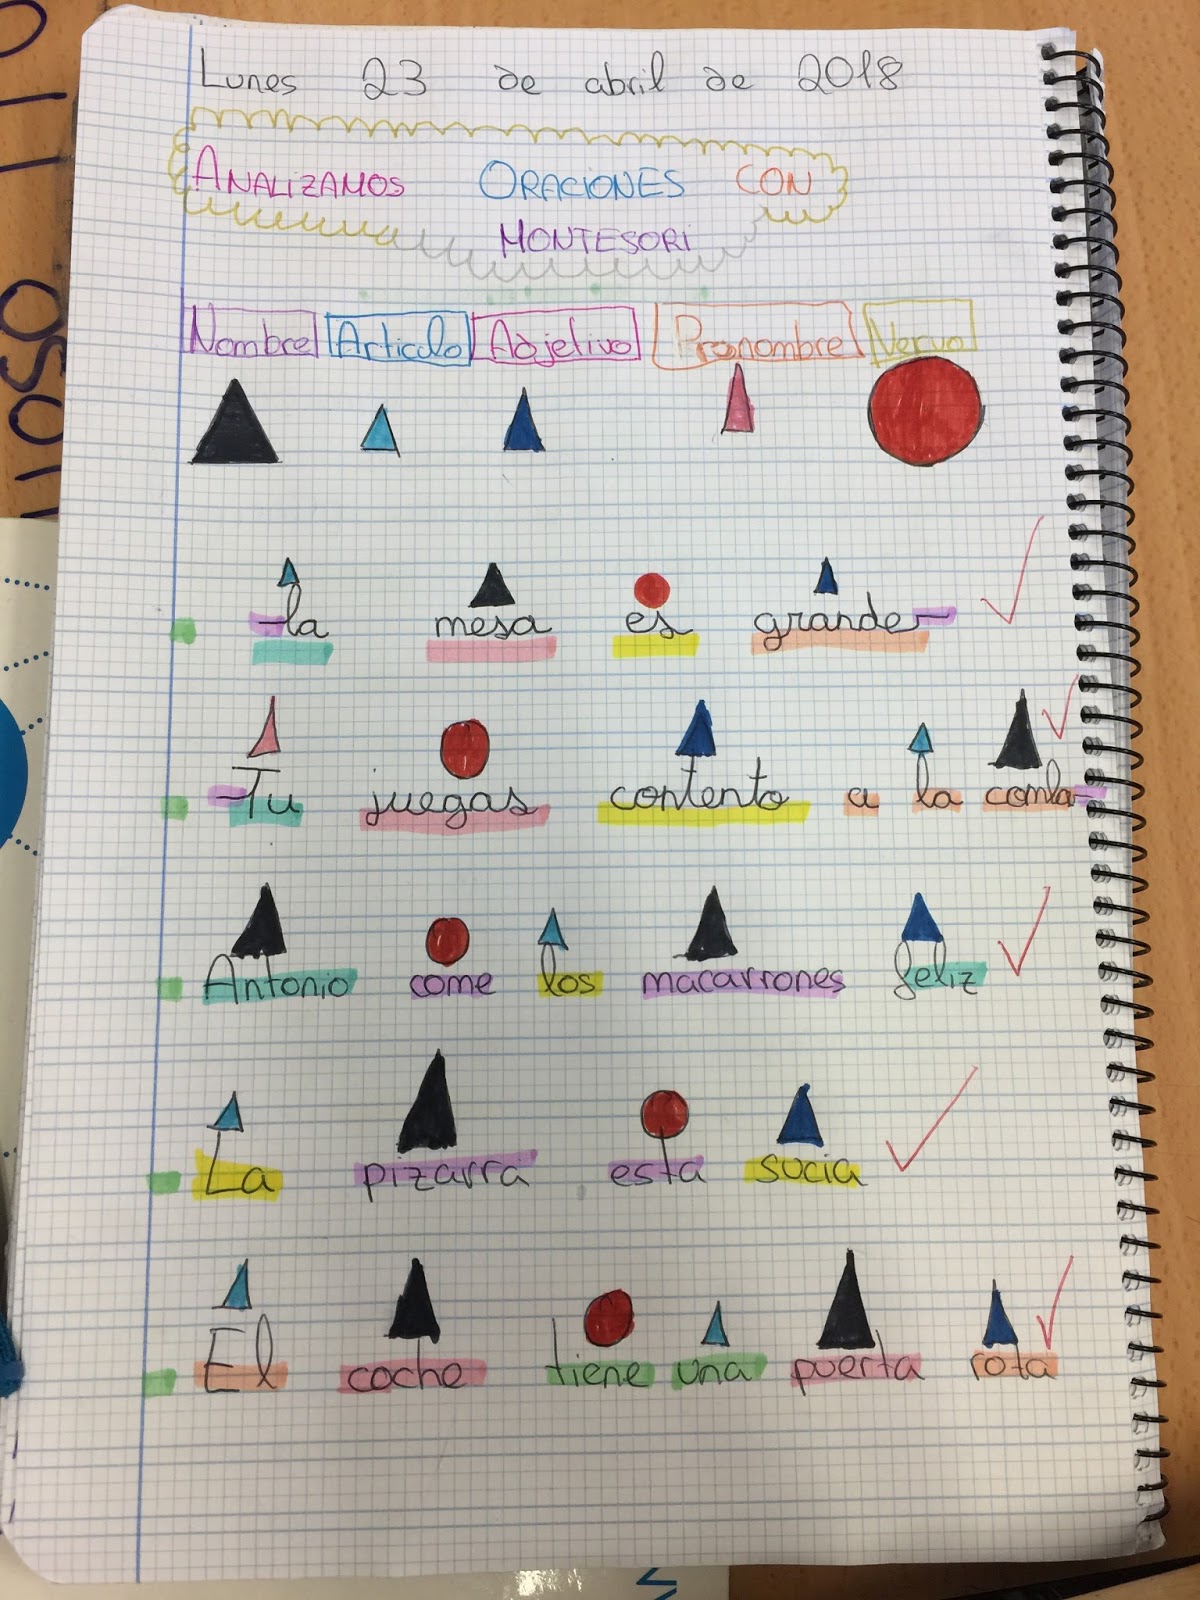 Lunes 23 de abril de 2018
ANALIZAMOS ORACIONES CON
MONTESORI
Nombre Articulo Adjetivo Pronombre Vervo
-la mesa es grande-
-Tu juegas contento a la comba-
Antonio come los macarrones feliz
La pizarra esta sucia
El coche tiene una puerta rota